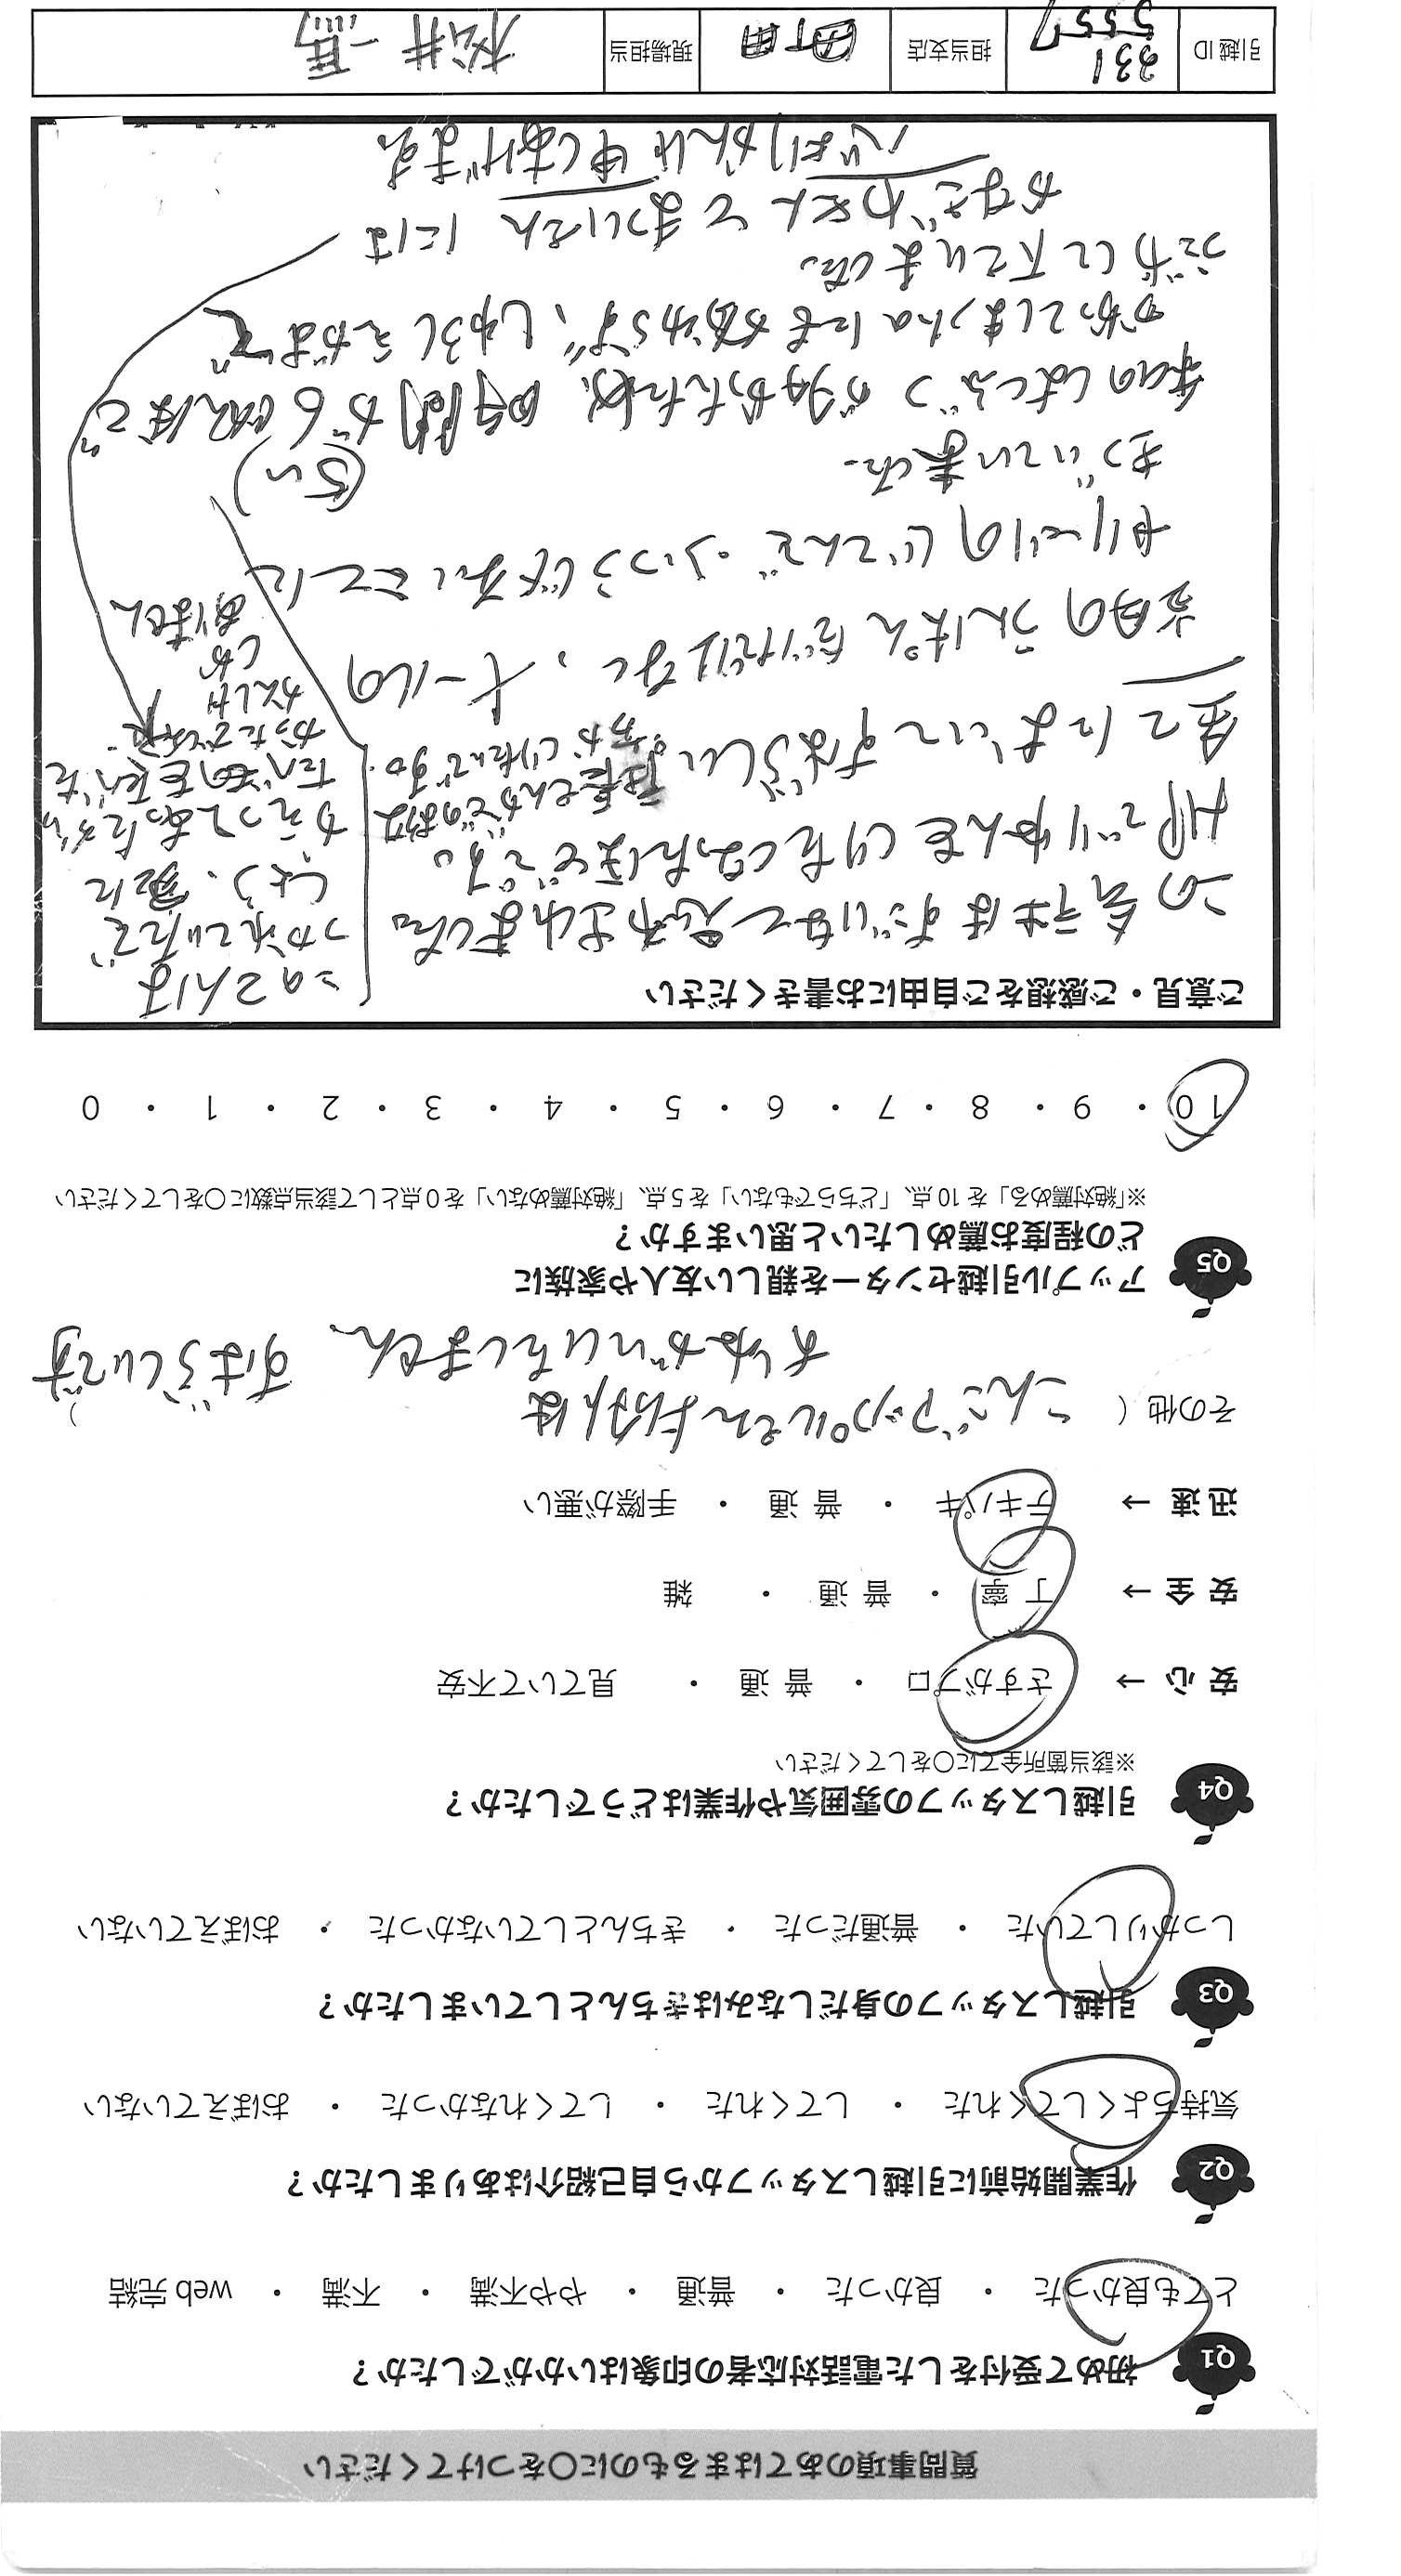 質問事項のあてはまるものに○をつけてください
Q1 初めて受付をした電話対応者の印象はいかがでしたか？
とても良かった ・ 良かった ・ 普通 ・ やや不満 ・ 不満 ・ web 完結
Q2 作業開始前に引越しスタッフから自己紹介はありましたか？
気持ちよくしてくれた ・ してくれた ・ してくれなかった ・ おぼえていない
Q3 引越しスタッフの身だしなみはきちんとしていましたか？
しっかりしていた ・ 普通だった ・ きちんとしていなかった ・ おぼえていない
Q4 引越しスタッフの雰囲気や作業はどうでしたか？
※該当箇所全てに○をしてください
安 心 → さすがプロ ・ 普 通 ・ 見ていて不安
安 全 → 丁 寧 ・ 普 通 ・ 雑
迅 速 → テキパキ ・ 普 通 ・ 手際が悪い
その他（ こんごアップルさんいがいは
おねがいしません、すばらしいです ）
Q5 アップル引越センターを親しい友人や家族に
どの程度お薦めしたいと思いますか？
※「絶対薦める」を 10 点、「どちらでもない」を 5 点、「絶対薦めない」を 0 点として該当点数に○をしてください
10 ・ 9 ・ 8 ・ 7 ・ 6 ・ 5 ・ 4 ・ 3 ・ 2 ・ 1 ・ 0
ご意見・ご感想をご自由にお書きください
この会社はすごいなと思われました。
HPでりゆんをしりたくなったほどです。
社長さんがどのような
方かしりたいですね。
全てにおいてすばらしい
当日のうんぱんだけではなく、メールの
やりとりのじてんで、ふつうじゃないことに
きづいていました。
(らい)
本のはこぶつがおおかったため、時間が6時ほど
かかってしまったにもかかわらず、しゅうしえがおで
うごかして下さいました。
かなざわさんとまついさんには
心よりかんしゃ申しあげます。
つかれていたで
しょう、家に
かえってあたたかい
たべものをたべた
かったでしょう。
かんしゃ
しか
ありません
引越 ID 331 5557 担当支店 町田 現場担当 松井 一馬